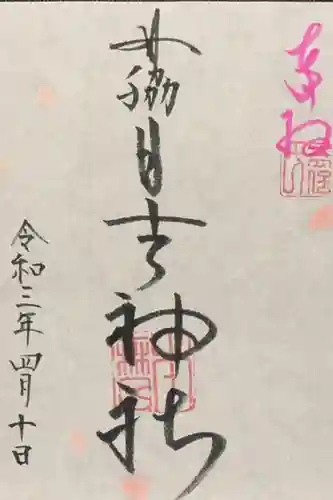 奉拝
茘日吉神社
令和三年四月十日